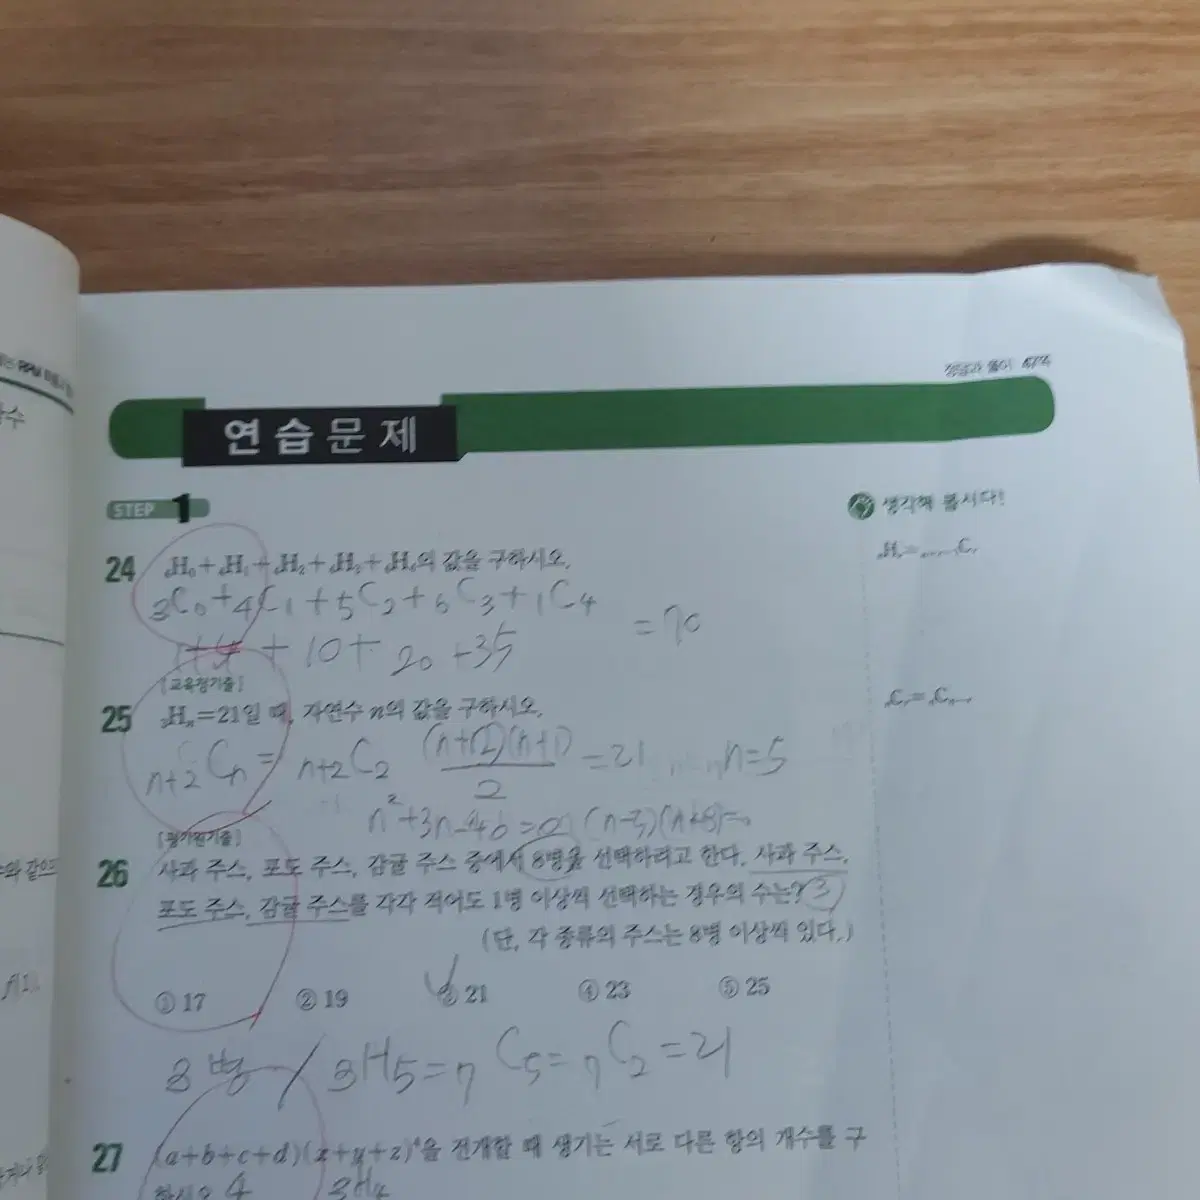 수
정답과 풀이 47쪽
연습문제
STEP 1
생각해 봅시다!
24 ₄H₀+₄H₁+₄H₂+₄H₃+₄H₄의 값을 구하시오.
₃C₀+₄C₁+₅C₂+₆C₃+₇C₄
1+4+10+20+35
=70
[교육청기출]
25 ₃Hₙ=21일 때, 자연수 n의 값을 구하시오.
ₙ₊₂Cₙ= ₙ₊₂C₂ (n+2)(n+1)/2 =21 n=5
[평가원기출]
26 사과 주스, 포도 주스, 감귤 주스 중에서 8병을 선택하려고 한다. 사과 주스,
포도 주스, 감귤 주스를 각각 적어도 1병 이상씩 선택하는 경우의 수는? 3
(단, 각 종류의 주스는 8병 이상씩 있다.)
① 17 ② 19 ③ 21 ④ 23 ⑤ 25
3병 / ₃H₅=₇C₅=₇C₂=21
27 (a+b+c+d)(x+y+z)⁴을 전개할 때 생기는 서로 다른 항의 개수를 구
하시오. 4 ₃H₄